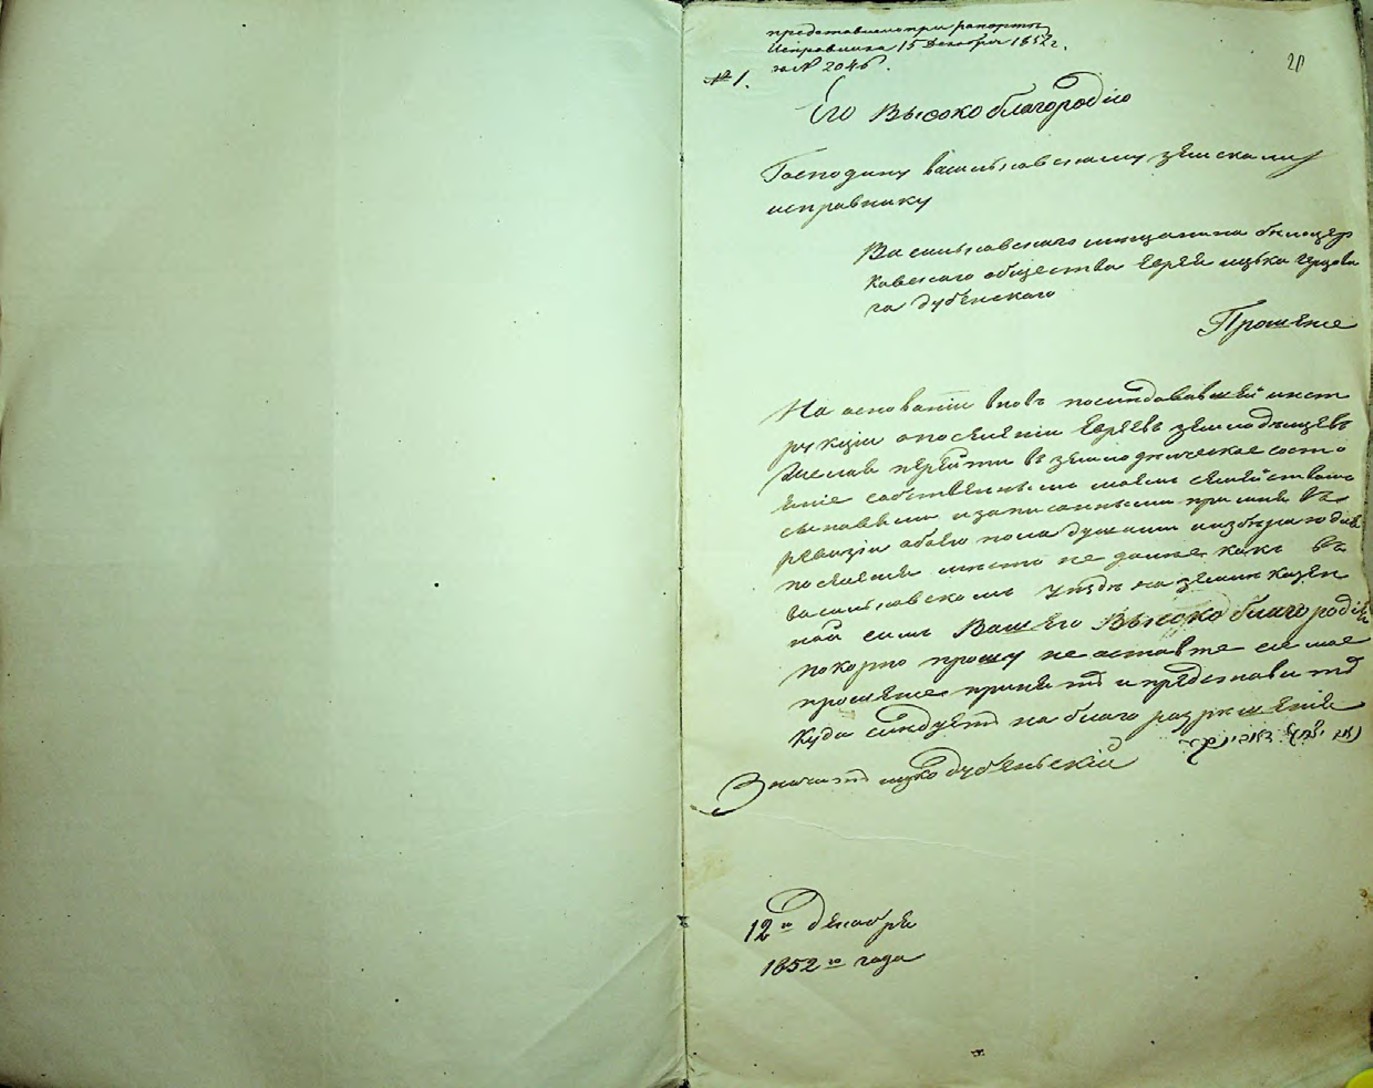 представлено при рапорте
Исправника 15 декабря 1852 г.
за № 2046.
20
№ 1.
Его Высокоблагородию
Господину васильковскому земскому
исправнику
Васильковского мещанина белоцер
ковского общества Еврея ицька герцова
го дубенского
Прошение
На основании вновь последовавшей инст
рукции о поселении Евреев земледельцев
желая перейти в земледелческое состо
яние собственным моим семейством
сыновьями и записанными при мне в
ревизии обоего пола душами избираю для
поселения место не далее как в
васильковском уезде на земле казен
ной
Вашего Высокоблагородия
покорно прошу не оставте сие мое
прошение принять и представить
куда следует на благо разрешение
ицко дубеньский
12го декабря
1852го года